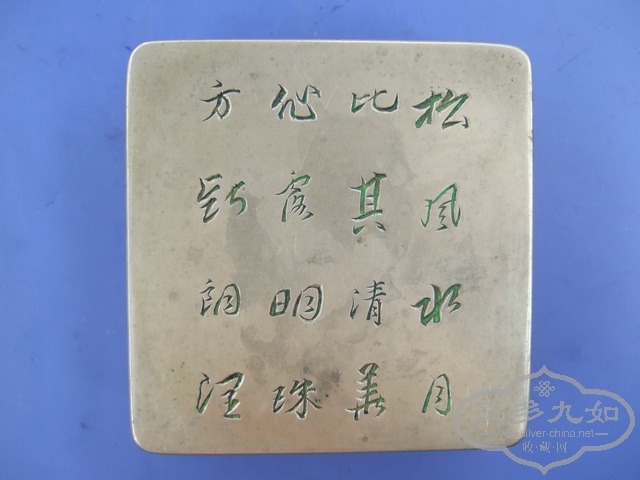 松風水月
比其清華
仙露明珠
方斯朗潤
多九如
silver-china.net
收·藏·网